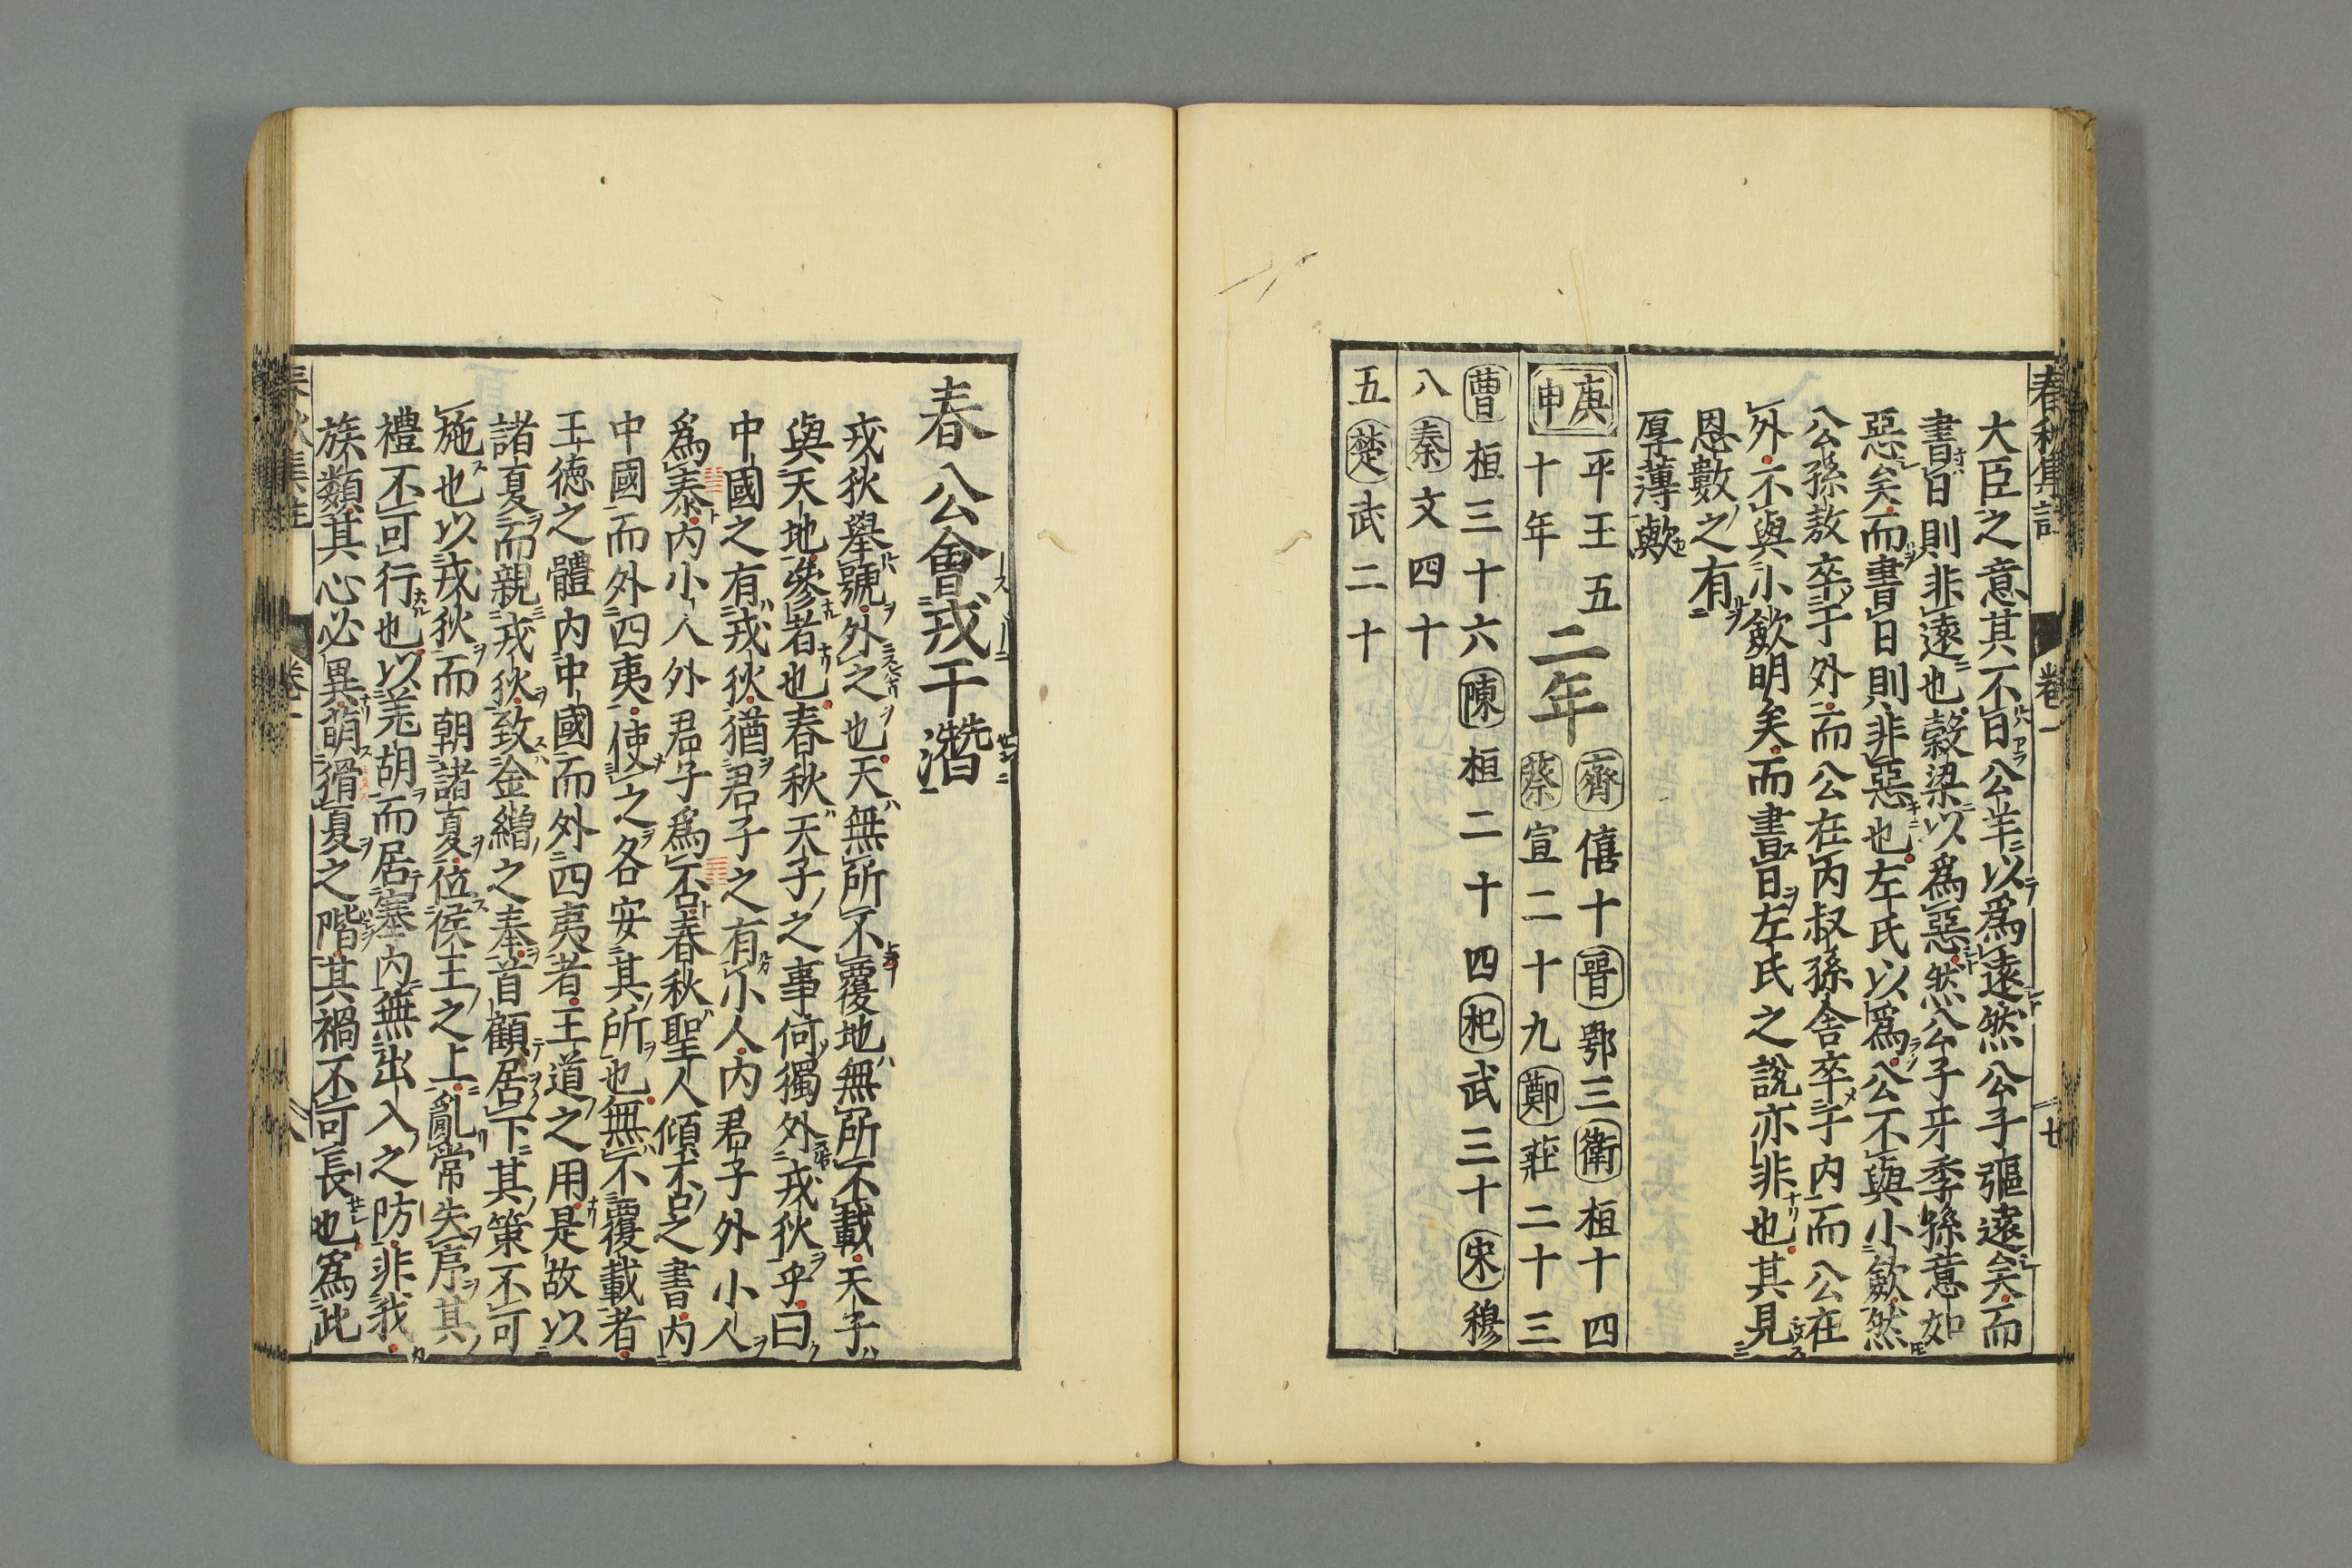 大臣之意其不日公羊以爲遠然公子彄遠矣而
書日則非遠也穀梁以爲惡然公子牙季孫意如
惡矣而書日則非惡也左氏以爲公不與小歛然
公孫敖卒于外而公在內叔孫舍卒于內而公在
外不與小歛明矣而書日左氏之說亦非也其見
恩數之有
厚薄歟
庚申
平王五
十年
二年
齊僖十晉鄂三衛桓十四
蔡宣二十九鄭莊二十三
曹桓三十六陳桓二十四杞武三十宋穆
八秦文四十
五楚武二十
卷一
廿
春公會戎于潛
戎狄舉號外之也天無所不覆地無所不載天子
與天地參者也春秋天子之事何獨外戎狄乎曰
中國之有戎狄猶君子之有小人內君子外小人
爲泰內小人外君子爲否春秋聖人傾否之書內
中國而外四夷使之各安其所也無不覆載者
王德之體內中國而外四夷者王道之用是故以
諸夏而親戎狄致金繒之奉首顧居下其策不可
施也以戎狄而朝諸夏位侯王之上亂常失序其
禮不可行也以羌胡而居塞內無出入之防非我
族類其心必異萌猾夏之階其禍不可長也爲此